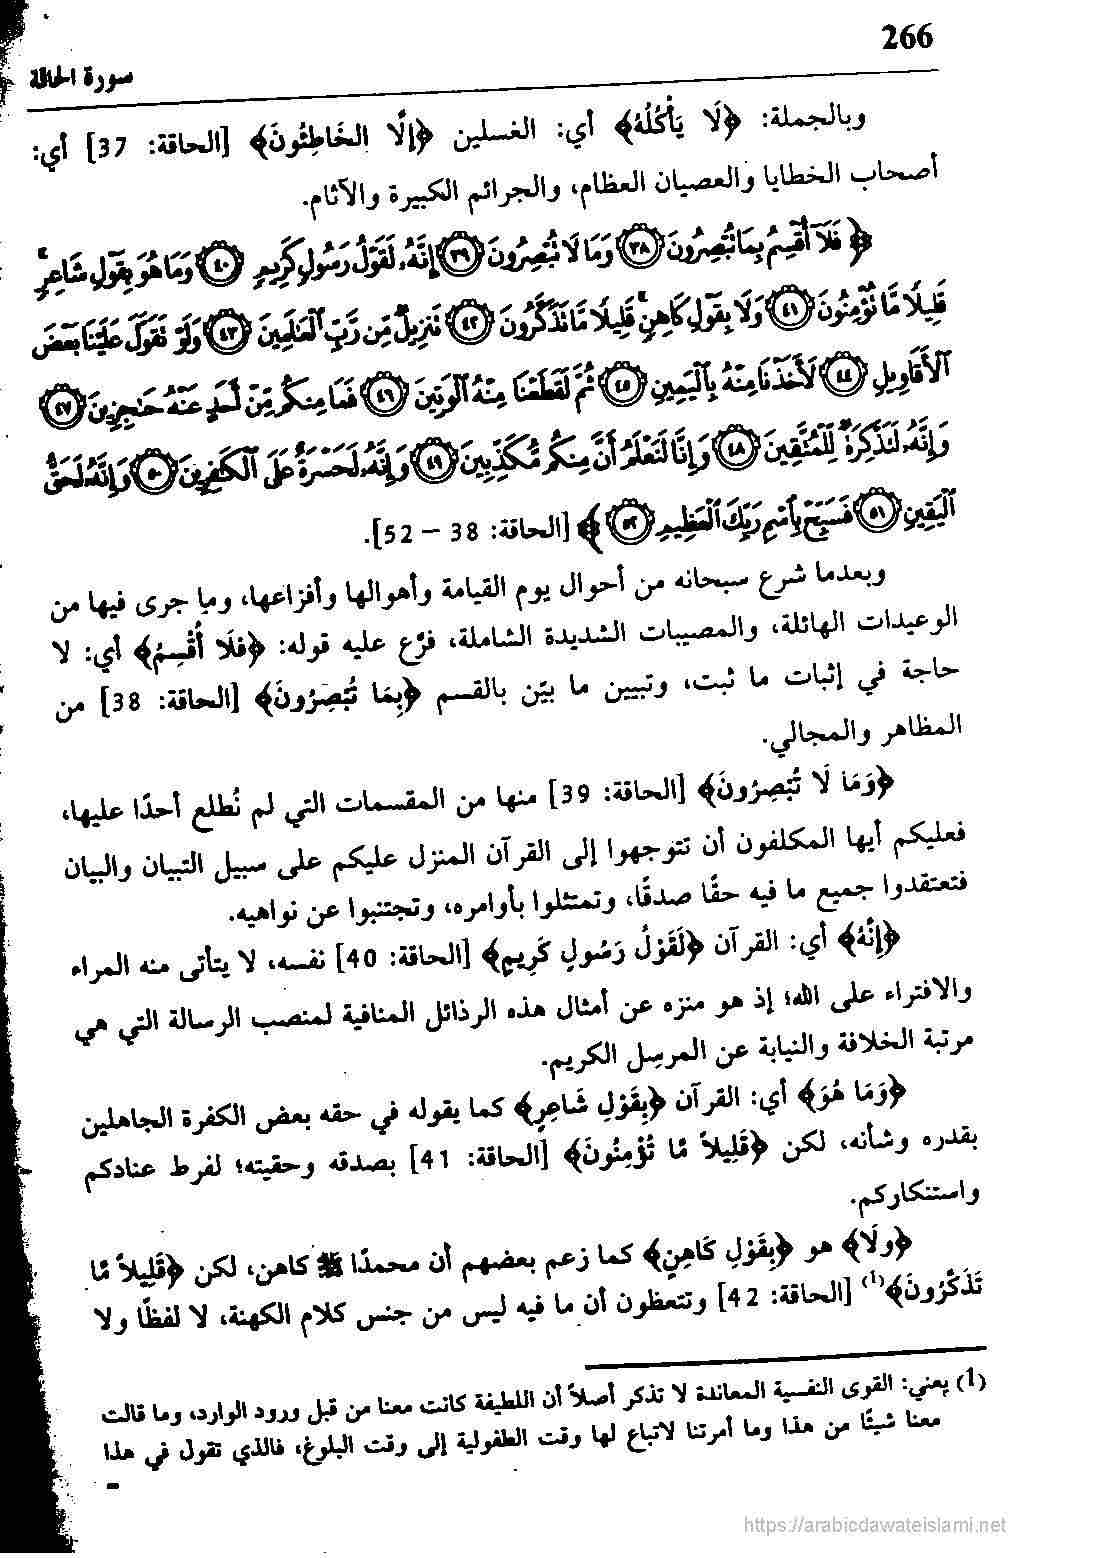 266
سورة الحاقة
وبالجملة: ﴿لَا يَأْكُلُهُ﴾ أي: الغسلين ﴿إلَّا الخَاطِئُونَ﴾ [الحاقة: 37] أي:
أصحاب الخطايا والعصيان العظام، والجرائم الكبيرة والآثام.
﴿فَلَآ أُقْسِمُ بِمَا تُبْصِرُونَ ٣٨ وَمَا لَا تُبْصِرُونَ ٣٩ إِنَّهُۥ لَقَوْلُ رَسُولٍ كَرِيمٍ ٤٠ وَمَا هُوَ بِقَوْلِ شَاعِرٍۚ
قَلِيلًا مَّا تُؤْمِنُونَ ٤١ وَلَا بِقَوْلِ كَاهِنٍۚ قَلِيلًا مَّا تَذَكَّرُونَ ٤٢ تَنزِيلٌ مِّن رَّبِّ ٱلْعَٰلَمِينَ ٤٣ وَلَوْ تَقَوَّلَ عَلَيْنَا بَعْضَ
ٱلْأَقَاوِيلِ ٤٤ لَأَخَذْنَا مِنْهُ بِٱلْيَمِينِ ٤٥ ثُمَّ لَقَطَعْنَا مِنْهُ ٱلْوَتِينَ ٤٦ فَمَا مِنكُم مِّنْ أَحَدٍ عَنْهُ حَٰجِزِينَ ٤٧
وَإِنَّهُۥ لَتَذْكِرَةٌ لِّلْمُتَّقِينَ ٤٨ وَإِنَّا لَنَعْلَمُ أَنَّ مِنكُم مُّكَذِّبِينَ ٤٩ وَإِنَّهُۥ لَحَسْرَةٌ عَلَى ٱلْكَٰفِرِينَ ٥٠ وَإِنَّهُۥ لَحَقُّ
ٱلْيَقِينِ ٥١ فَسَبِّحْ بِٱسْمِ رَبِّكَ ٱلْعَظِيمِ ٥٢﴾ [الحاقة: 38 – 52].
وبعدما شرع سبحانه من أحوال يوم القيامة وأهوالها وأفزاعها، وما جرى فيها من
الوعيدات الهائلة، والمصيبات الشديدة الشاملة، فرَّع عليه قوله: ﴿فلَا أُقْسِمُ﴾ أي: لا
حاجة في إثبات ما ثبت، وتبيين ما بيّن بالقسم ﴿بِمَا تُبْصِرُونَ﴾ [الحاقة: 38] من
المظاهر والمجالي.
﴿وَمَا لَا تُبْصِرُونَ﴾ [الحاقة: 39] منها من المقسمات التي لم نُطلع أحدًا عليها،
فعليكم أيها المكلفون أن تتوجهوا إلى القرآن المنزل عليكم على سبيل التبيان والبيان
فتعتقدوا جميع ما فيه حقًا صدقًا، وتمتثلوا بأوامره، وتجتنبوا عن نواهيه.
﴿إنَّهُ﴾ أي: القرآن ﴿لَقَوْلُ رَسُولٍ كَرِيمٍ﴾ [الحاقة: 40] نفسه، لا يتأتى منه المراء
والافتراء على الله؛ إذ هو منزه عن أمثال هذه الرذائل المنافية لمنصب الرسالة التي هي
مرتبة الخلافة والنيابة عن المرسِل الكريم.
﴿وَمَا هُوَ﴾ أي: القرآن ﴿بِقَوْلِ شَاعِرٍ﴾ كما يقوله في حقه بعض الكفرة الجاهلين
بقدره وشأنه، لكن ﴿قَلِيلاً مَّا تُؤْمِنُونَ﴾ [الحاقة: 41] بصدقه وحقيته؛ لفرط عنادكم
واستنكاركم.
﴿ولَا﴾ هو ﴿بِقَوْلِ كَاهِنٍ﴾ كما زعم بعضهم أن محمدًا ﷺ كاهن، لكن ﴿قَلِيلاً مَّا
تَذَكَّرُونَ﴾(1) [الحاقة: 42] وتتعظون أن ما فيه ليس من جنس كلام الكهنة، لا لفظًا ولا
(1) يعني: القوى النفسية المعاندة لا تذكر أصلاً أن اللطيفة كانت معنا من قبل ورود الوارد، وما قالت
معنا شيئًا من هذا وما أمرتنا لاتباع لها وقت الطفولية إلى وقت البلوغ، فالذي تقول في هذا
https://arabicdawateislami.net